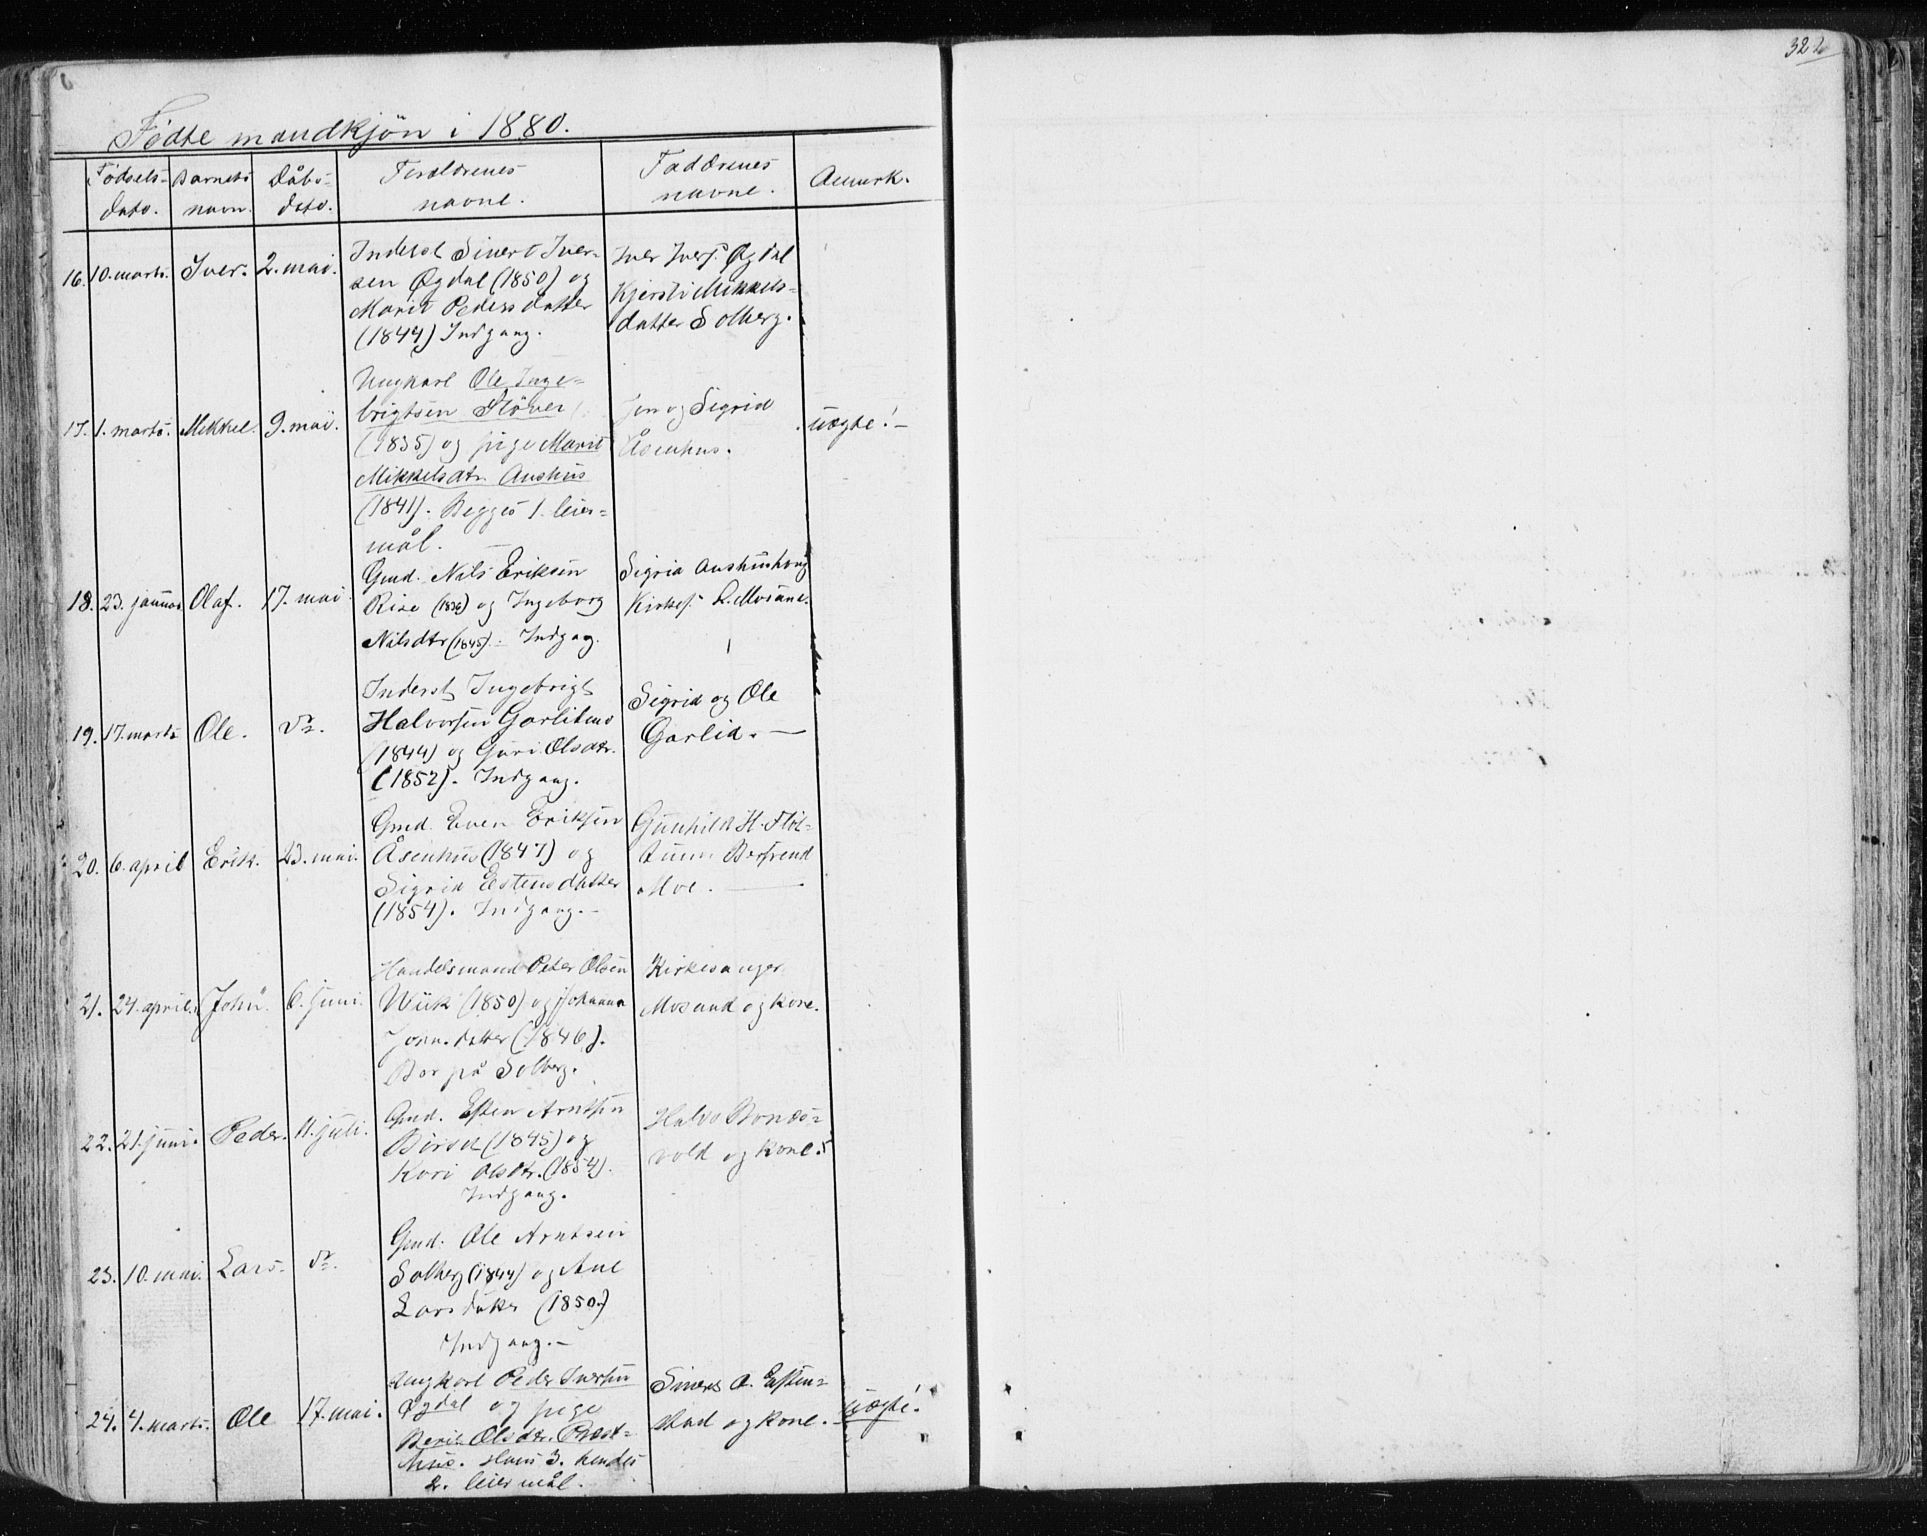 322
Fødte mandkjön i 1880.
Födsels- dato. Barnets navn. Dåbs- dato. Forældrenes navne. Faddrenes navne. Anmerk.
16. 10. marts. Iver. 2. mai.
Inderst Sivert Iver-
sen Øgdal (1850) og
Marit Pedersdatter
(1844) Indgang.
Iver Ivers. Øgdal
Kjersti Mikkels-
datter Solberg.
17. 1. marts. Mikkel. 9. mai.
Ungkarl Ole Inge-
brigtsen Stöver
(1835) og pige Marit
Mikkelsdtr. Aushus
(1841). Begges 1. leier-
mål.
Jon og Sigrid
Åsenhus.
uægte!-
18. 23. januar Olaf. 17. mai.
Gmd. Nils Eriksen
Rise (1836) og Ingeborg
Nilsdtr (1845). Indgag.
Sigrid Aushushaug
Kirkes. L. Mosand.
19. 17. marts Ole. do.
Inderst Ingebrigt
Halvorsen Garlitrø
(1844) og Guri Olsdtr.
(1852). Indgang.
Sigrid og Ole
Garlid. -
20. 6. april Erik. 23. mai.
Gmd. Even Eriksen
Åsenhus (1847) og
Sigrid Estensdatter
(1854). Indgang. -
Gunhild H. Flöt-
tum Berfrend
Moe. -
21. 24. april. John. 6. juni.
Handelsmand Peter Olsen
Wiik (1850) og Johanna
Jonsdatter (1846).
Bor på Solberg.
Kirkesanger
Mosand og kone.
22. 21. juni. Peder. 11. juli.
Gmd. Esten Arntsen
Börset (1845) og
Kari Olsdtr. (1854).
Indgang.
Halvo Bonæs-
vold og kone.
23. 10. mai. Lars. do.
Gmd. Ole Arntsen
Solberg (1844) og Ane
Larsdatter (1850.)
Indgang. -
24. 4. marts. Ole 17. mai.
Ungkarl Peder Iversen
Øgdal og pige
Berit Olsdtr. Præst-
hus. Hans 3. hendes
2. leiermål.
Sivert O. Esten-
stad og kone.
uægte!